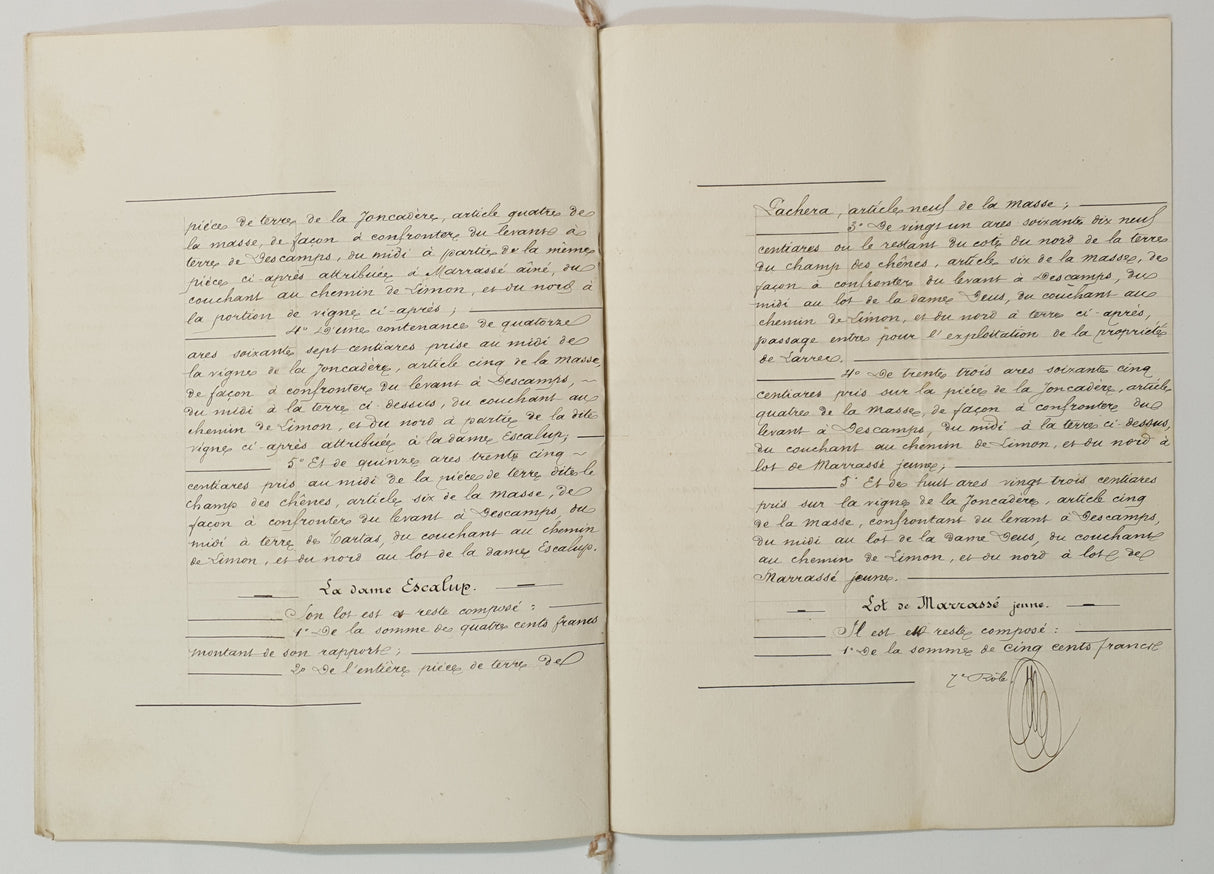 pièce de terre de la Joncadère, article quatre de
la masse, de façon à confronter du levant à
terre de Descamps, du midi à partie de la même
pièce ci-après attribuée à Marrassé ainé, du
couchant au chemin de Limon, et du nord à
la portion de vigne ci-après ;
4° D'une contenance de quatorze
ares soixante sept centiares prise au midi de
la vigne de la Joncadère, article cinq de la masse,
de façon à confronter du levant à Descamps, ~
du midi à la terre ci-dessus, du couchant au
chemin de Limon, et du nord à partie de la dite
vigne ci-après attribuée à la dame Escalup ;
5° Et de quinze ares trente cinq ~
centiares pris au midi de la pièce de terre dite le
champ des chênes, article six de la masse, de
façon à confronter du levant à Descamps, du
midi à terre de Tartas, du couchant au chemin
de Limon, et du nord au lot de la dame Escalup.
La dame Escalup.
Son lot est et reste composé :
1° De la somme de quatre cents francs
montant de son rapport ;
2° De l'entière pièce de terre de
Pachera, article neuf de la masse ;
3° De vingt un ares soixante dix neuf
centiares ou le restant du coté du nord de la terre
du champ des chênes, article six de la masse, de
façon à confronter du levant à Descamps, du
midi au lot de la dame Deus, du couchant au
chemin de Limon, et du nord à terre ci-après,
passage entre pour l'exploitation de la propriété
de Larrec.
4° De trente trois ares soixante cinq
centiares pris sur la pièce de la Joncadère, article
quatre de la masse, de façon à confronter du
levant à Descamps, du midi à la terre ci-dessus,
du couchant au chemin de Limon, et du nord à
lot de Marrassé jeune ;
5° Et de huit ares vingt trois centiares
pris sur la vigne de la Joncadère, article cinq
de la masse, confrontant du levant à Descamps,
du midi au lot de la dame Deus, du couchant
au chemin de Limon, et du nord à lot de
Marrassé jeune.
Lot de Marrassé jeune.
Il est et reste composé :
1° De la somme de cinq cents francs
7e Rôle.